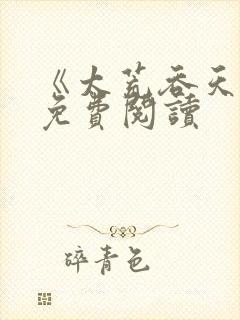 《大荒吞天
免費閱讀
碎青色